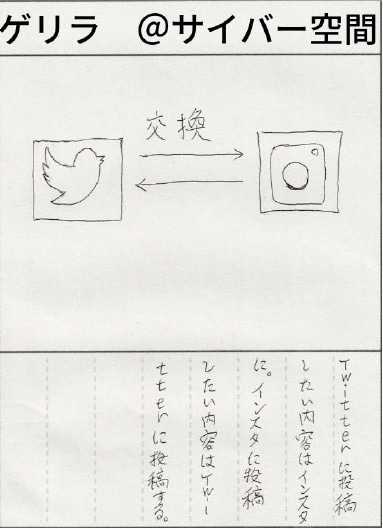 ゲリラ　@サイバー空間
交換
Twitterに投稿
したい内容はインスタ
に。インスタに投稿
したい内容はTwi
tterに投稿する。